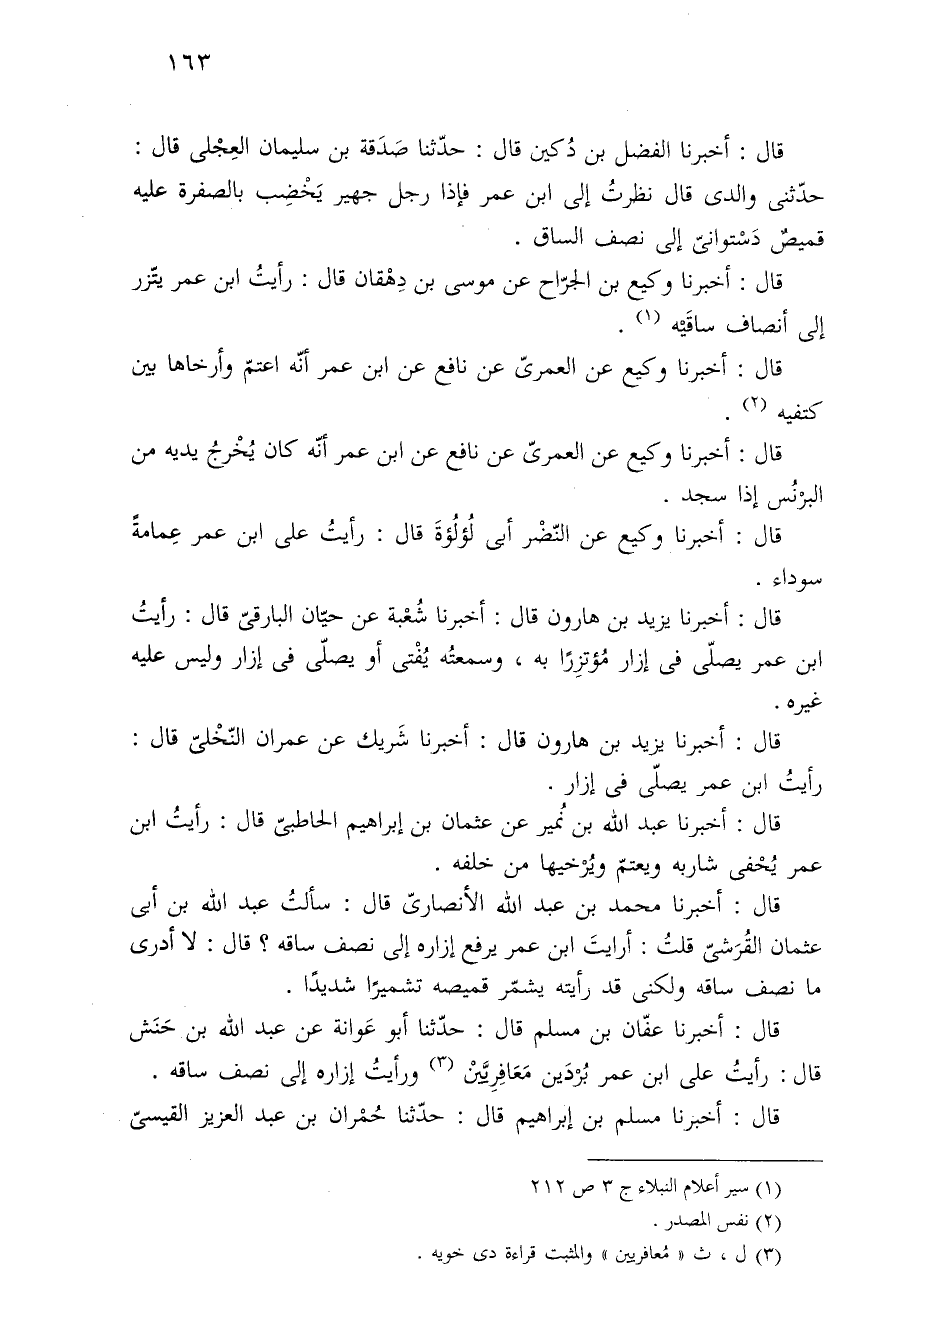 ١٦٣
قال : أخبرنا الفضل بن دُكين قال : حدّثنا صَدَقة بن سليمان العِجْلى قال :
حدّثنى والدى قال نظرتُ إلى ابن عمر فإذا رجل جهير يَخْضِب بالصفرة عليه
قميصٌ دَسْتوانىّ إلى نصف الساق .
قال : أخبرنا وكيع بن الجرّاح عن موسى بن دِهْقان قال : رأيتُ ابن عمر يتّزر
إلى أنصاف ساقَيْه (١) .
قال : أخبرنا وكيع عن العمرىّ عن نافع عن ابن عمر أنّه اعتمّ وأرخاها بين
كتفيه (٢) .
قال : أخبرنا وكيع عن العمرىّ عن نافع عن ابن عمر أنّه كان يُخْرجُ يديه من
البرْنُس إذا سجد .
قال : أخبرنا وكيع عن النّضْر أبى لُؤلُؤةَ قال : رأيتُ على ابن عمر عِمامةً
سوداء .
قال : أخبرنا يزيد بن هارون قال : أخبرنا شُعْبة عن حيّان البارقىّ قال : رأيتُ
ابن عمر يصلّى فى إزار مُؤتزِرًا به ، وسمعتُه يُفْتى أو يصلّى فى إزار وليس عليه
غيره .
قال : أخبرنا يزيد بن هارون قال : أخبرنا شَريك عن عمران النّخْلىّ قال :
رأيتُ ابن عمر يصلّى فى إزار .
قال : أخبرنا عبد الله بن نُمير عن عثمان بن إبراهيم الحاطبىّ قال : رأيتُ ابن
عمر يُحْفى شاربه ويعتمّ ويُرْخيها من خلفه .
قال : أخبرنا محمد بن عبد الله الأنصارىّ قال : سألتُ عبد الله بن أبى
عثمان القُرَشىّ قلتُ : أرايتَ ابن عمر يرفع إزاره إلى نصف ساقه ؟ قال : لا أدرى
ما نصف ساقه ولكنى قد رأيته يشمّر قميصه تشميرًا شديدًا .
قال : أخبرنا عفّان بن مسلم قال : حدّثنا أبو عَوانة عن عبد الله بن حَنَش
قال : رأيتُ على ابن عمر بُرْدَين مَعَافِرِيَّيْنْ (٣) ورأيتُ إزاره إلى نصف ساقه .
قال : أخبرنا مسلم بن إبراهيم قال : حدّثنا حُمْران بن عبد العزيز القيسىّ
(١) سير أعلام النبلاء ج ٣ ص ٢١٢
(٢) نفس المصدر .
(٣) ل ، ث « مُعافريين » والمثبت قراءة دى خويه .